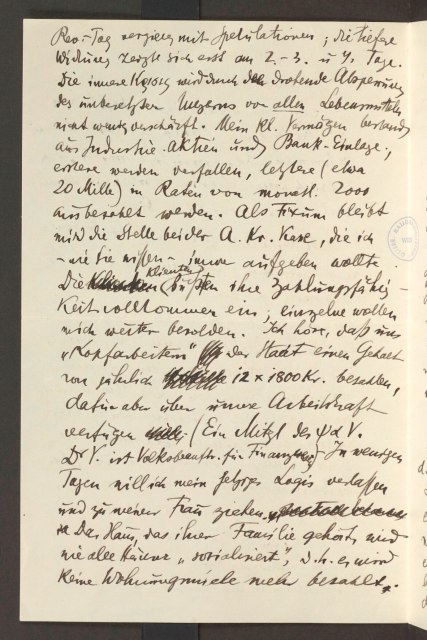 Rev.-Tag verging mit Spekulationen; die tiefere
Wirkung zeigte sich erst am 2.-3. u 4. Tage.
Die innere Krisis wird durch die drohende Absperrung
des unbesetzten Ungarns von allen Lebensmitteln
nicht wenig verschärft. Mein kl. Vermögen bestand
aus Industrie-Aktien und Bank-Einlage;
erstere werden verfallen, letztere (etwa
20 Mille) in Raten von monatl. 2000
ausbezahlt werden. Als Fixum bleibt
mir die Stelle bei der A. Kr. Kasse, die ich
- wie Sie wissen - immer aufgeben wollte.
Die Klienten büßten ihre Zahlungsfähig-
keit vollkommen ein; einzelne wollen
mich weiter besolden. Ich höre, daß uns
„Kopfarbeitern" der Staat einen Gehalt
von jährlich 12 x 1800 Kr. bezahlen,
dafür aber über unsere Arbeitskraft
verfügen will. (Ein Mitgl. des ψα V.
Dr V. ist Volksbeauftr. für Finanzen) In wenigen
Tagen will ich mein jetziges Logis verlassen
und zu meiner Frau ziehen.
Das Haus, das ihrer Familie gehört, wird
wie alle Häuser „sozialisiert", d.h. es wird
keine Wohnungsmiete mehr bezahlt.